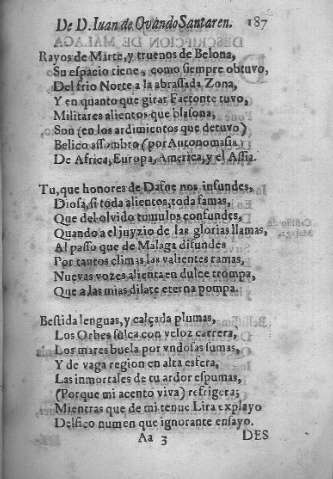 De D. Iuan de Ovando Santaren. 187
Rayos de Marte, y truenos de Belona,
Su espacio tiene, como siempre obtuvo,
Del frio Norte a la abrassada Zona,
Y en quanto que girar Faetonte tuvo,
Militares alientos que blasona,
Son (en los ardimientos que detuvo)
Belico assombro (por Autonomasia)
De Africa, Europa, America, y el Assia.
Tu, que honores de Dafne nos infundes,
Diosa, si toda alientos, toda famas,
Que del olvido tumulos confundes,
Quando a el juyzio de las glorias llamas,
Al passo que de Malaga difundes
Por tantos climas las valientes ramas,
Nuevas vozes alienta en dulce trompa,
Que a las mias dilate eterna pompa.
Bestida lenguas, y calçada plumas,
Los Orbes sulca con veloz carrera,
Los mares buela por vndosas sumas,
Y de vaga region en alta esfera,
Las inmortales de tu ardor espumas,
(Porque mi acento viva) refrigera;
Mientras que de mi tenue Lira explayo
Delfico numen que ignorante ensayo.
Aa 3 DES